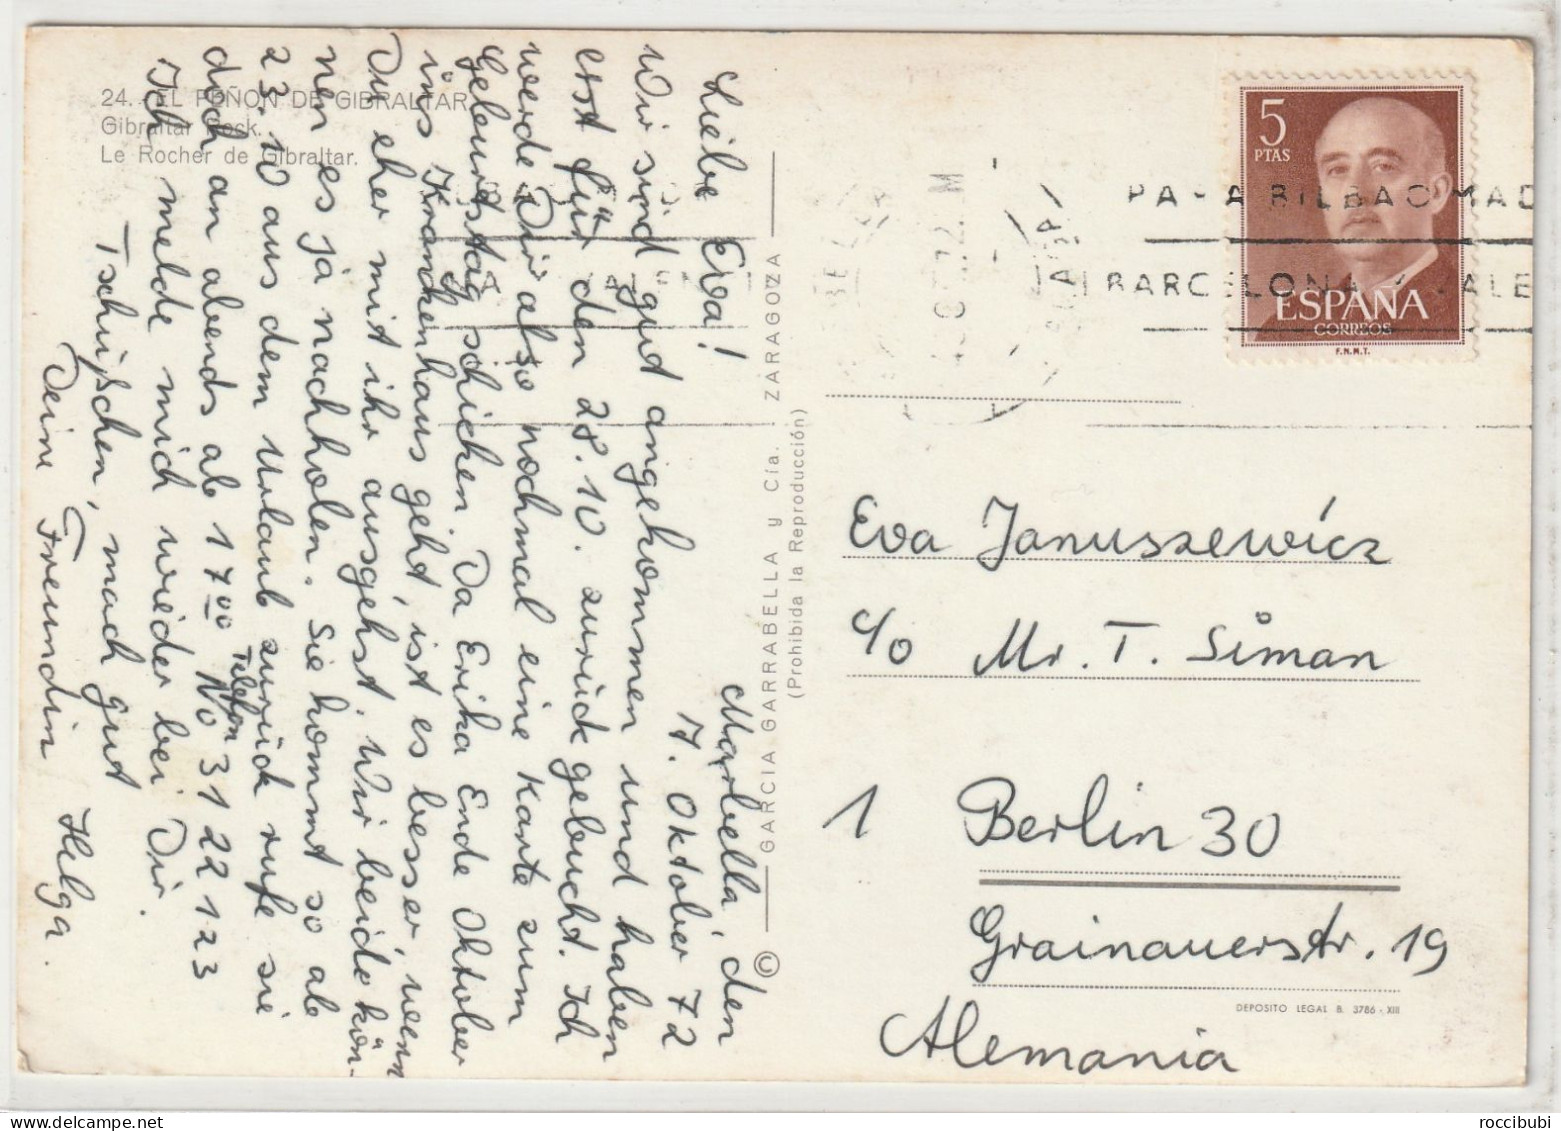 24. EL PEÑON DE GIBRALTAR
Gibraltar Rock.
Le Rocher de Gibraltar.
Marbella, den
7. Oktober 72
Liebe Eva!
Wir sind gut angekommen und haben
erst für den 28.10. zurück gebucht. Ich
werde Dir also nochmal eine Karte zum
Geburtstag schicken. Da Erika Ende Oktober
ins Krankenhaus geht, ist es besser, wenn
Du eher mit ihr ausgehst. Wir beide kön-
nen es ja nachholen. Sie kommt so ab
23.10 aus dem Urlaub zurück rufe sie
doch an abends ab 17 00 Telefon No 31 22 123
Ich melde mich wieder bei Dir.
Tschüßchen, mach gut
Deine Freundin Helga.
© GARCIA GARRABELLA y Cía. ZARAGOZA
(Prohibida la Reproducción)
5
PTAS
ESPAÑA
CORREOS
F.N.M.T.
BILBAO MAD
BARCELONA
Eva Januszewicz
c/o Mr. T. Siman
1 Berlin 30
Grainauerstr. 19
Alemania
DEPOSITO LEGAL B. 3786 - XIII
roccibubi